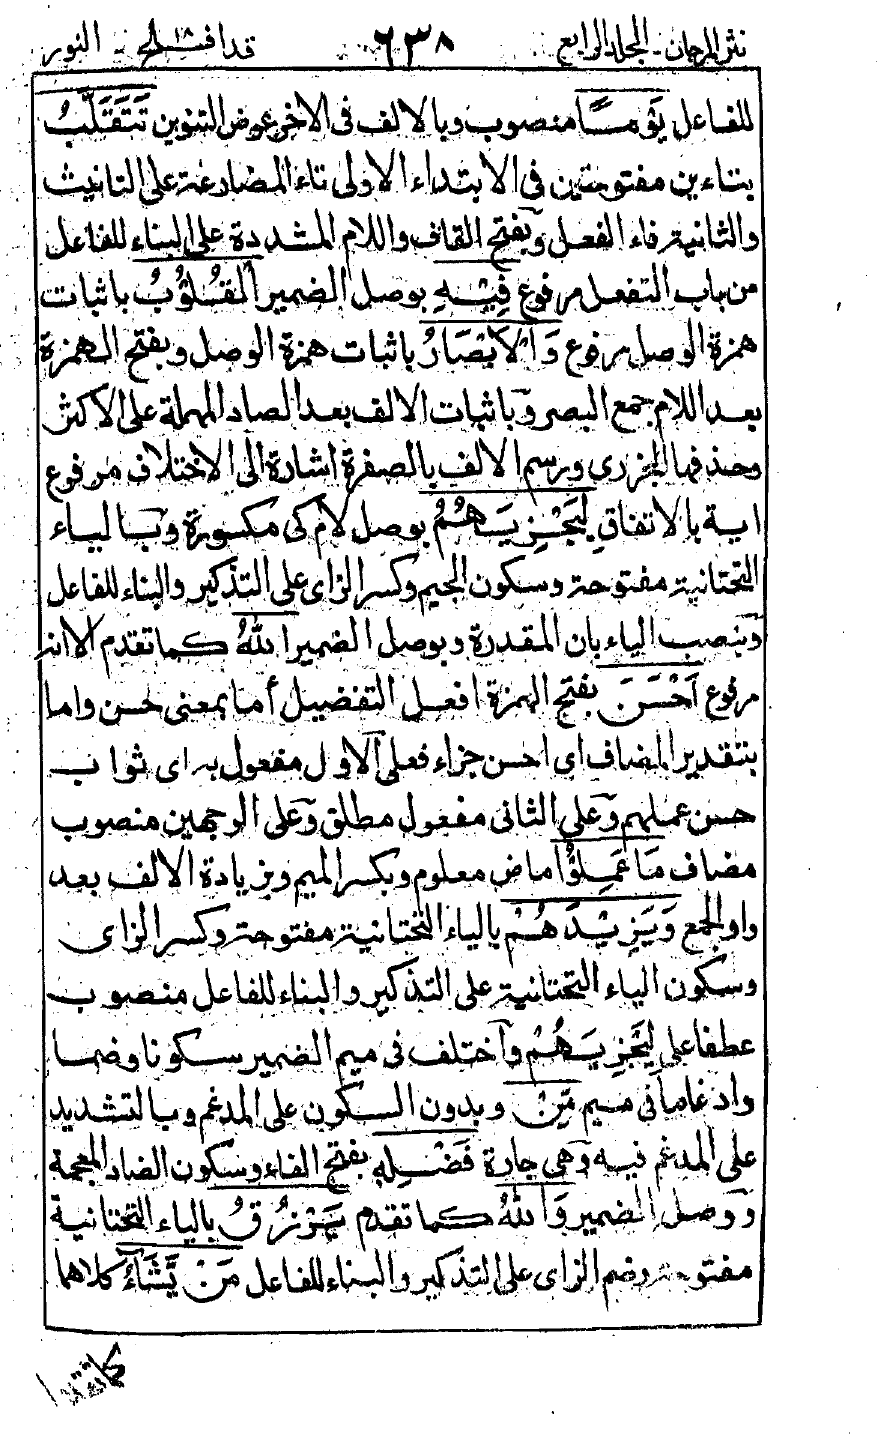 نثر المرجان - المجلد الرابع ٦٣٨ قد افلح ١٨ - النور
للفاعل يَوْمًا منصوب وبالالف فى الاخر عوض التنوين تَتَقَلَّبُ
بتاءين مفتوحتين فى الابتداء الاولى تاء المضارعة على التانيث
والثانية فاء الفعل وبفتح القاف واللام المشددة على البناء للفاعل
من باب التفعل مرفوع فِيْهِ بوصل الضمير الْقُلُوْبُ باثبات
همزة الوصل مرفوع وَالْاَبْصَارُ باثبات همزة الوصل وبفتح الهمزة
بعد اللام جمع البصر وباثبات الالف بعد الصاد المهملة على الاكثر
وحذفها الجزرى ورسم الالف بالصفرة اشارة الى الاختلاف مرفوع
اية بالاتفاق لِيَجْزِيَهُمُ بوصل لام كى مكسورة وبالياء
التحتانية مفتوحة وسكون الجيم وكسر الزاى على التذكير والبناء للفاعل
وبنصب الياء بان المقدرة وبوصل الضمير اللهُ كما تقدم الا انه
مرفوع اَحْسَنَ بفتح الهمزة افعل التفضيل أما بمعنى حسن واما
بتقدير المضاف اى احسن جزاء فعلى الاول مفعول به اى ثواب
حسن عملهم وعلى الثانى مفعول مطلق وعلى الوجهين منصوب
مضاف مَا عَمِلُوْا ماض معلوم وبكسر الميم وبزيادة الالف بعد
واو الجمع وَيَزِيْدَهُمْ بالياء التحتانية مفتوحة وكسر الزاى
وسكون الياء التحتانية على التذكير والبناء للفاعل منصوب
عطفا على لِيَجْزِيَهُمُ واختلف فى ميم الضمير سكونا وضما
وادغاما فى ميم مِّنْ وبدون السكون على المدغم وبالتشديد
على المدغم فيه وهى جارة فَضْلِهٖ بفتح الفاء وسكون الضاد المعجمة
ووصل الضمير وَاللهُ كما تقدم يَرْزُقُ بالياء التحتانية
مفتوحة وضم الزاى على التذكير والبناء للفاعل مَنْ يَّشَآءُ كلاهما
كما تقدما